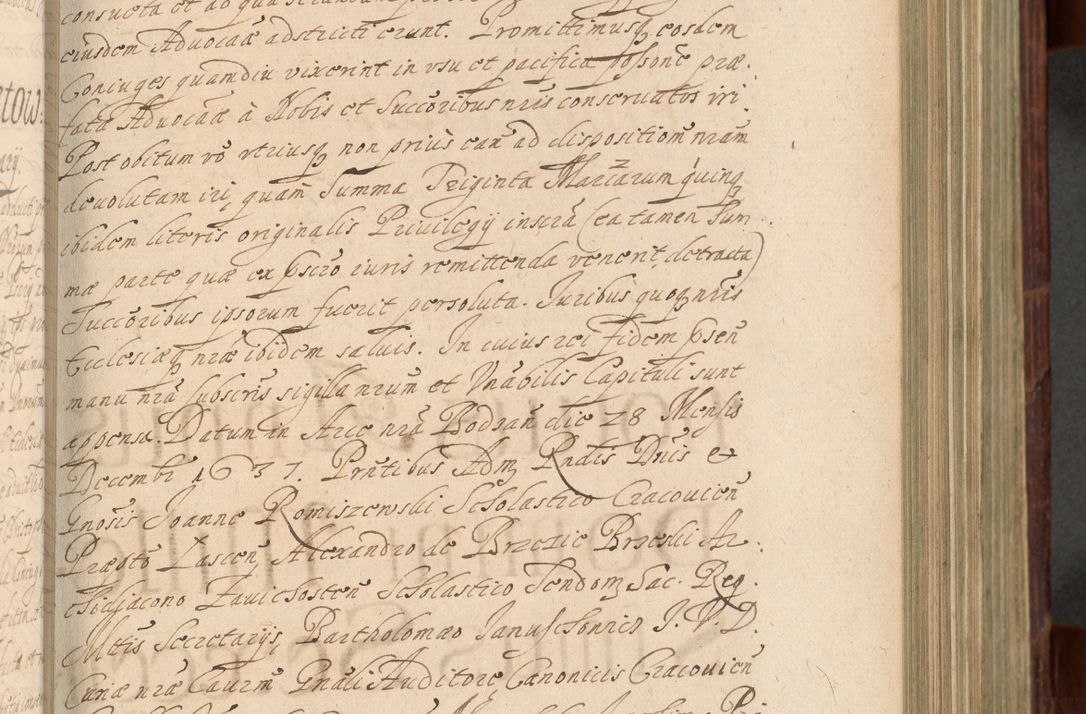 consueta et ad quae
eiusdem Aduocaae adstricti erunt. Promittimusq eosdem
Coniuges quamdiu vixerint in vsu et pacifica possone prae-
fata Aduocaae à Nobis et Succoribus nris conseruatos iri.
Post obitum vo vtriusq non prius eam ad dispositionem nram
deuolutam iri, quam Summa Triginta Marcarum quinq
ibidem literis originalis Priuilegij inserta (ea tamen Sum
mae parte quae ex pscro iuris remittenda venerit, detracta)
Succoribus ipsorum fuerit persoluta. Iuribus quoq nris
Ecclesiaeq nrae ibidem saluis. In cuius rei fidem psen
manu nra subscris sigilla nrum et Vnabilis Capituli sunt
appensa. Datum in Arce nra Bodzan die 28 Mensis
Decemb 1637. Prntibus Adm Rndis Dnis &
Gnosis Joanne Romiszewski Scholastico Cracouien
Praepto Lascen, Alexandro de Brzezie Brzeski Ar-
chidiacono Zauichosten Scholastico Sendom, Sac. Reg.
Mttis Secretarijs, Bartholomeo Januschowics J. V. D.
Curiae nrae Causarm Gnali Auditore, Canonicis Cracouien